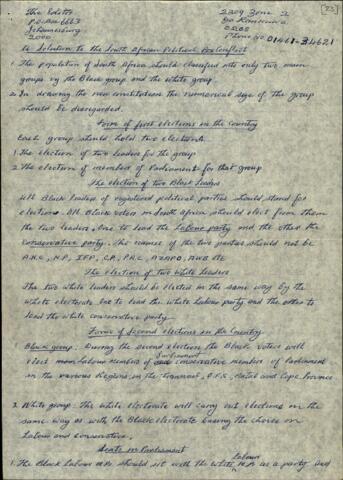 The Editor
P.O. Box 6663
Johannesburg
2000
2209 Zone 2
Ga Rankuwa
0208
Phone No. 01461-34621
(23)
A Solution to the South African Political Conflict
1. The population of South Africa should classified into only two main
groups viz the Black group and the white group.
2. In drawing the new constitution the numerical size of the group
should be disregarded.
Form of first elections in the Country
Each group should hold two elections
1. The election of two leaders for the group
2. The election of member of Parliament for that group
The election of two Black Leaders
All Black leaders of registered political parties should stand for
elections. All Black voters in South Africa should elect from them
the two leaders, one to lead the Labour party and the other the
Conservative party. The names of the two parties should not be
A.N.C., N.P., IFP, C.P., P.A.C., AZAPO, AWB etc
The election of two white Leaders
The two white leaders should be elected in the same way by the
white electorate one to lead the white Labour party and the other to
lead the white conservative party.
Form of second elections in the Country
Black group: During the second elections the Black voters will
elect main Labour members of Parliament conservative members of Parliament
in the various Regions in the Transvaal, O.F.S., Natal and Cape Province
2. White group: The white electorate will carry out elections in the
same way as with the Black electorate basing the choice on
Labour and conservative.
Seats in Parliament
1. The Black Labour M.Ps should sit with the white Labour M.Ps as a party and